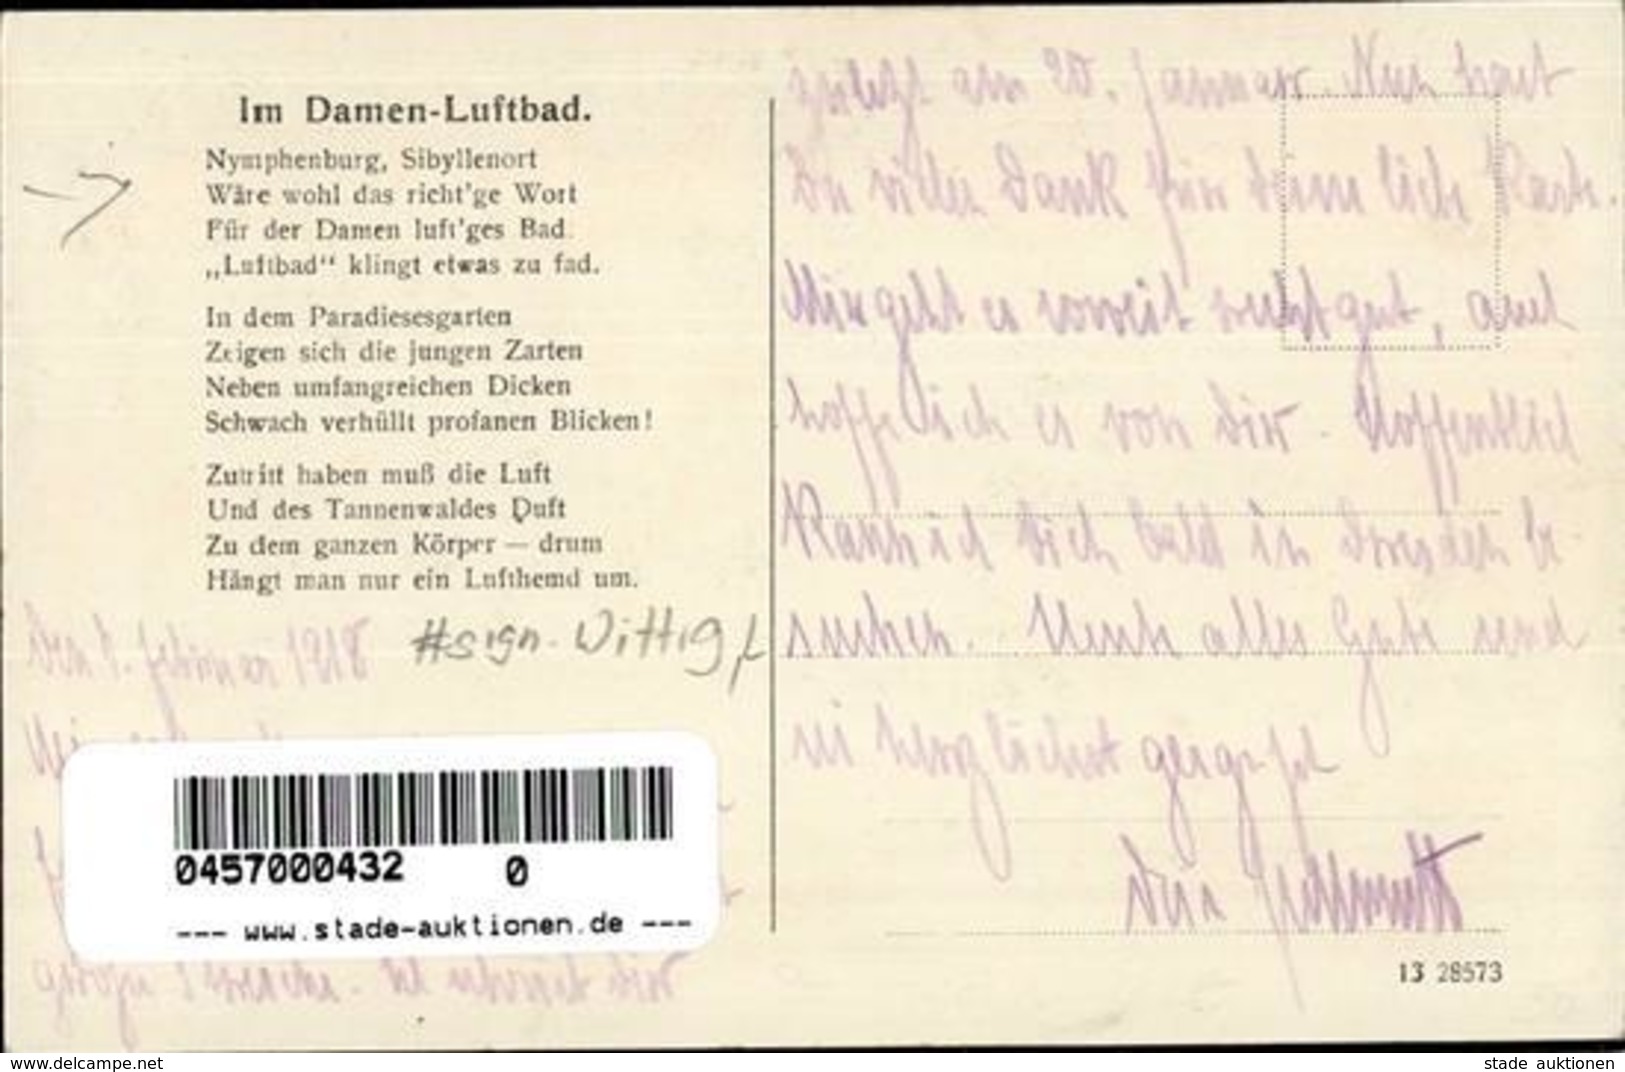 Im Damen-Luftbad.
Nymphenburg, Sibyllenort
Wäre wohl das richt'ge Wort
Für der Damen luft'ges Bad
„Luftbad“ klingt etwas zu fad.
In dem Paradiesesgarten
Zeigen sich die jungen Zarten
Neben umfangreichen Dicken
Schwach verhüllt profanen Blicken!
Zutritt haben muß die Luft
Und des Tannenwaldes Duft
Zu dem ganzen Körper — drum
Hängt man nur ein Lufthemd um.
#sign. Wittig
Den 1. Februar 1918
0457000432 0
--- www.stade-auktionen.de ---
große . schreibt Dir
zuletzt am 20. Januar. Nun
Du vielen Dank für Deine liebe Karte.
Mir geht es soweit recht gut, auch
hoffe ich es von Dir. Hoffentlich
kann ich Dich bald in Dresden be-
suchen. alles Gute und
sei herzlichst gegrüßt
Dein
13 28573
stade auktionen
www.delcampe.net